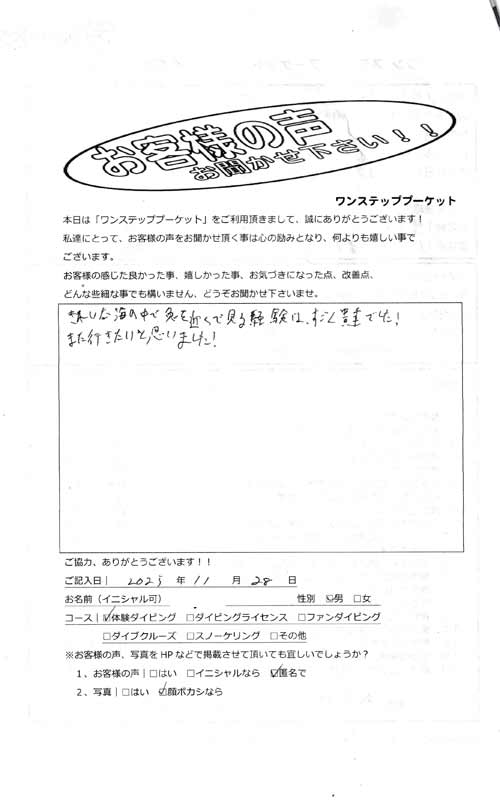 お客様の声
お聞かせ下さい!!
ワンステッププーケット
本日は「ワンステッププーケット」をご利用頂きまして、誠にありがとうございます!
私達にとって、お客様の声をお聞かせ頂く事は心の励みとなり、何よりも嬉しい事で
ございます。
お客様の感じた良かった事、嬉しかった事、お気づきになった点、改善点、
どんな些細な事でも構いません、どうぞお聞かせ下さいませ。
きれいな海の中で魚を近くで見る経験は、すごく貴重でした!
また行きたいと思いました!
ご協力、ありがとうございます!!
ご記入日| 2023 年 11 月 28 日
お名前(イニシャル可) 性別 ☑男 □女
コース|☑体験ダイビング □ダイビングライセンス □ファンダイビング
□ダイブクルーズ □スノーケリング □その他
※お客様の声、写真をHPなどで掲載させて頂いても宜しいでしょうか?
1、お客様の声|□はい □イニシャルなら ☑匿名で
2、写真|□はい ☑顔ボカシなら